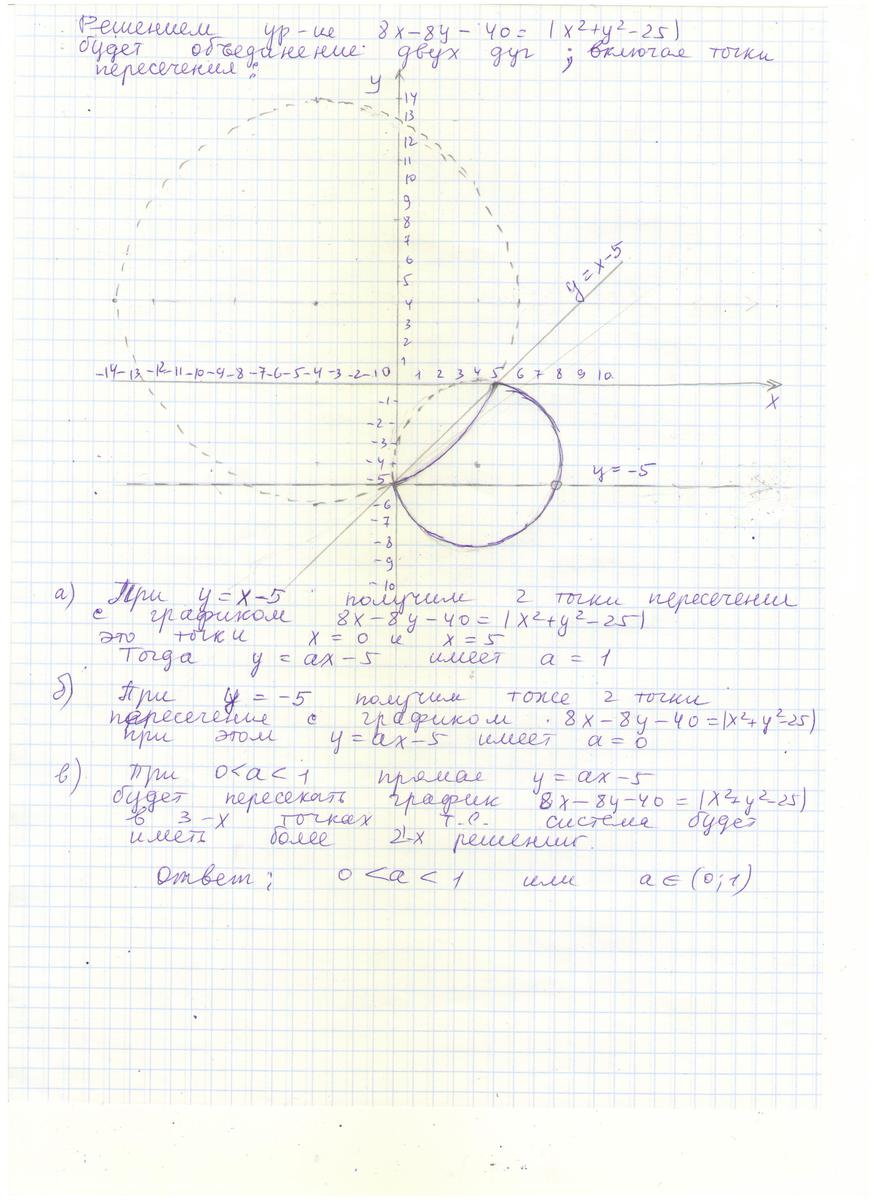 Решением ур-ие 8x-8y-40=|x²+y²-25|
будет объединение двух дуг; включая точки
пересечения:
y
14
13
12
11
10
9
8
7
6
5
4
3
2
1
y=x-5
-14 -13 -12 -11 -10 -9 -8 -7 -6 -5 -4 -3 -2 -1 0 1 2 3 4 5 6 7 8 9 10
x
-1
-2
-3
-4
-5
y=-5
-6
-7
-8
-9
-10
а) При y=x-5 получим 2 точки пересечения
с графиком 8x-8y-40=|x²+y²-25|
это точки x=0 и x=5
Тогда y=ax-5 имеет a=1
б) При y=-5 получим тоже 2 точки
пересечение с графиком 8x-8y-40=|x²+y²-25|
при этом y=ax-5 имеет a=0
в) При 0<a<1 прямая y=ax-5
будет пересекать график 8x-8y-40=|x²+y²-25|
в 3-х точках т.е. система будет
иметь более 2-х решений.
Ответ: 0<a<1 или a∈(0;1)